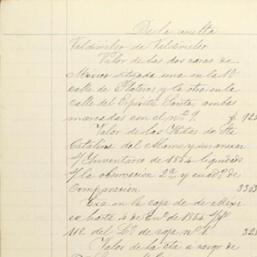 De la vuelta
Valdivielso de Valdivielso
Valor de las dos casas en
Mexico situada una en la 1ª
calle de Plateros y la otra en la
calle del Espiritu Santo, ambas
marcadas con el nº 9. $ 925
Valor de las Fincas de Sta
Catalina del Alamo y sus anexas
S/ Inventario de 1854 liquidado
S/ la observacion 2ª y cuadº de
Comparacion 3363
Exa en la caja de de Mexº
en hasta 4 de Enº de 1855 S/
118. del Lº de caja nº 1. 325
Valor de la Hta a cargo de